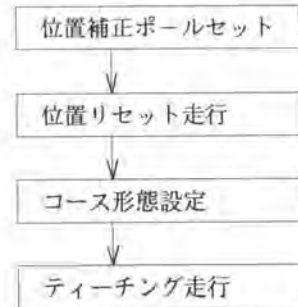 位置補正ポールセット
位置リセット走行
コース形態設定
ティーチング走行